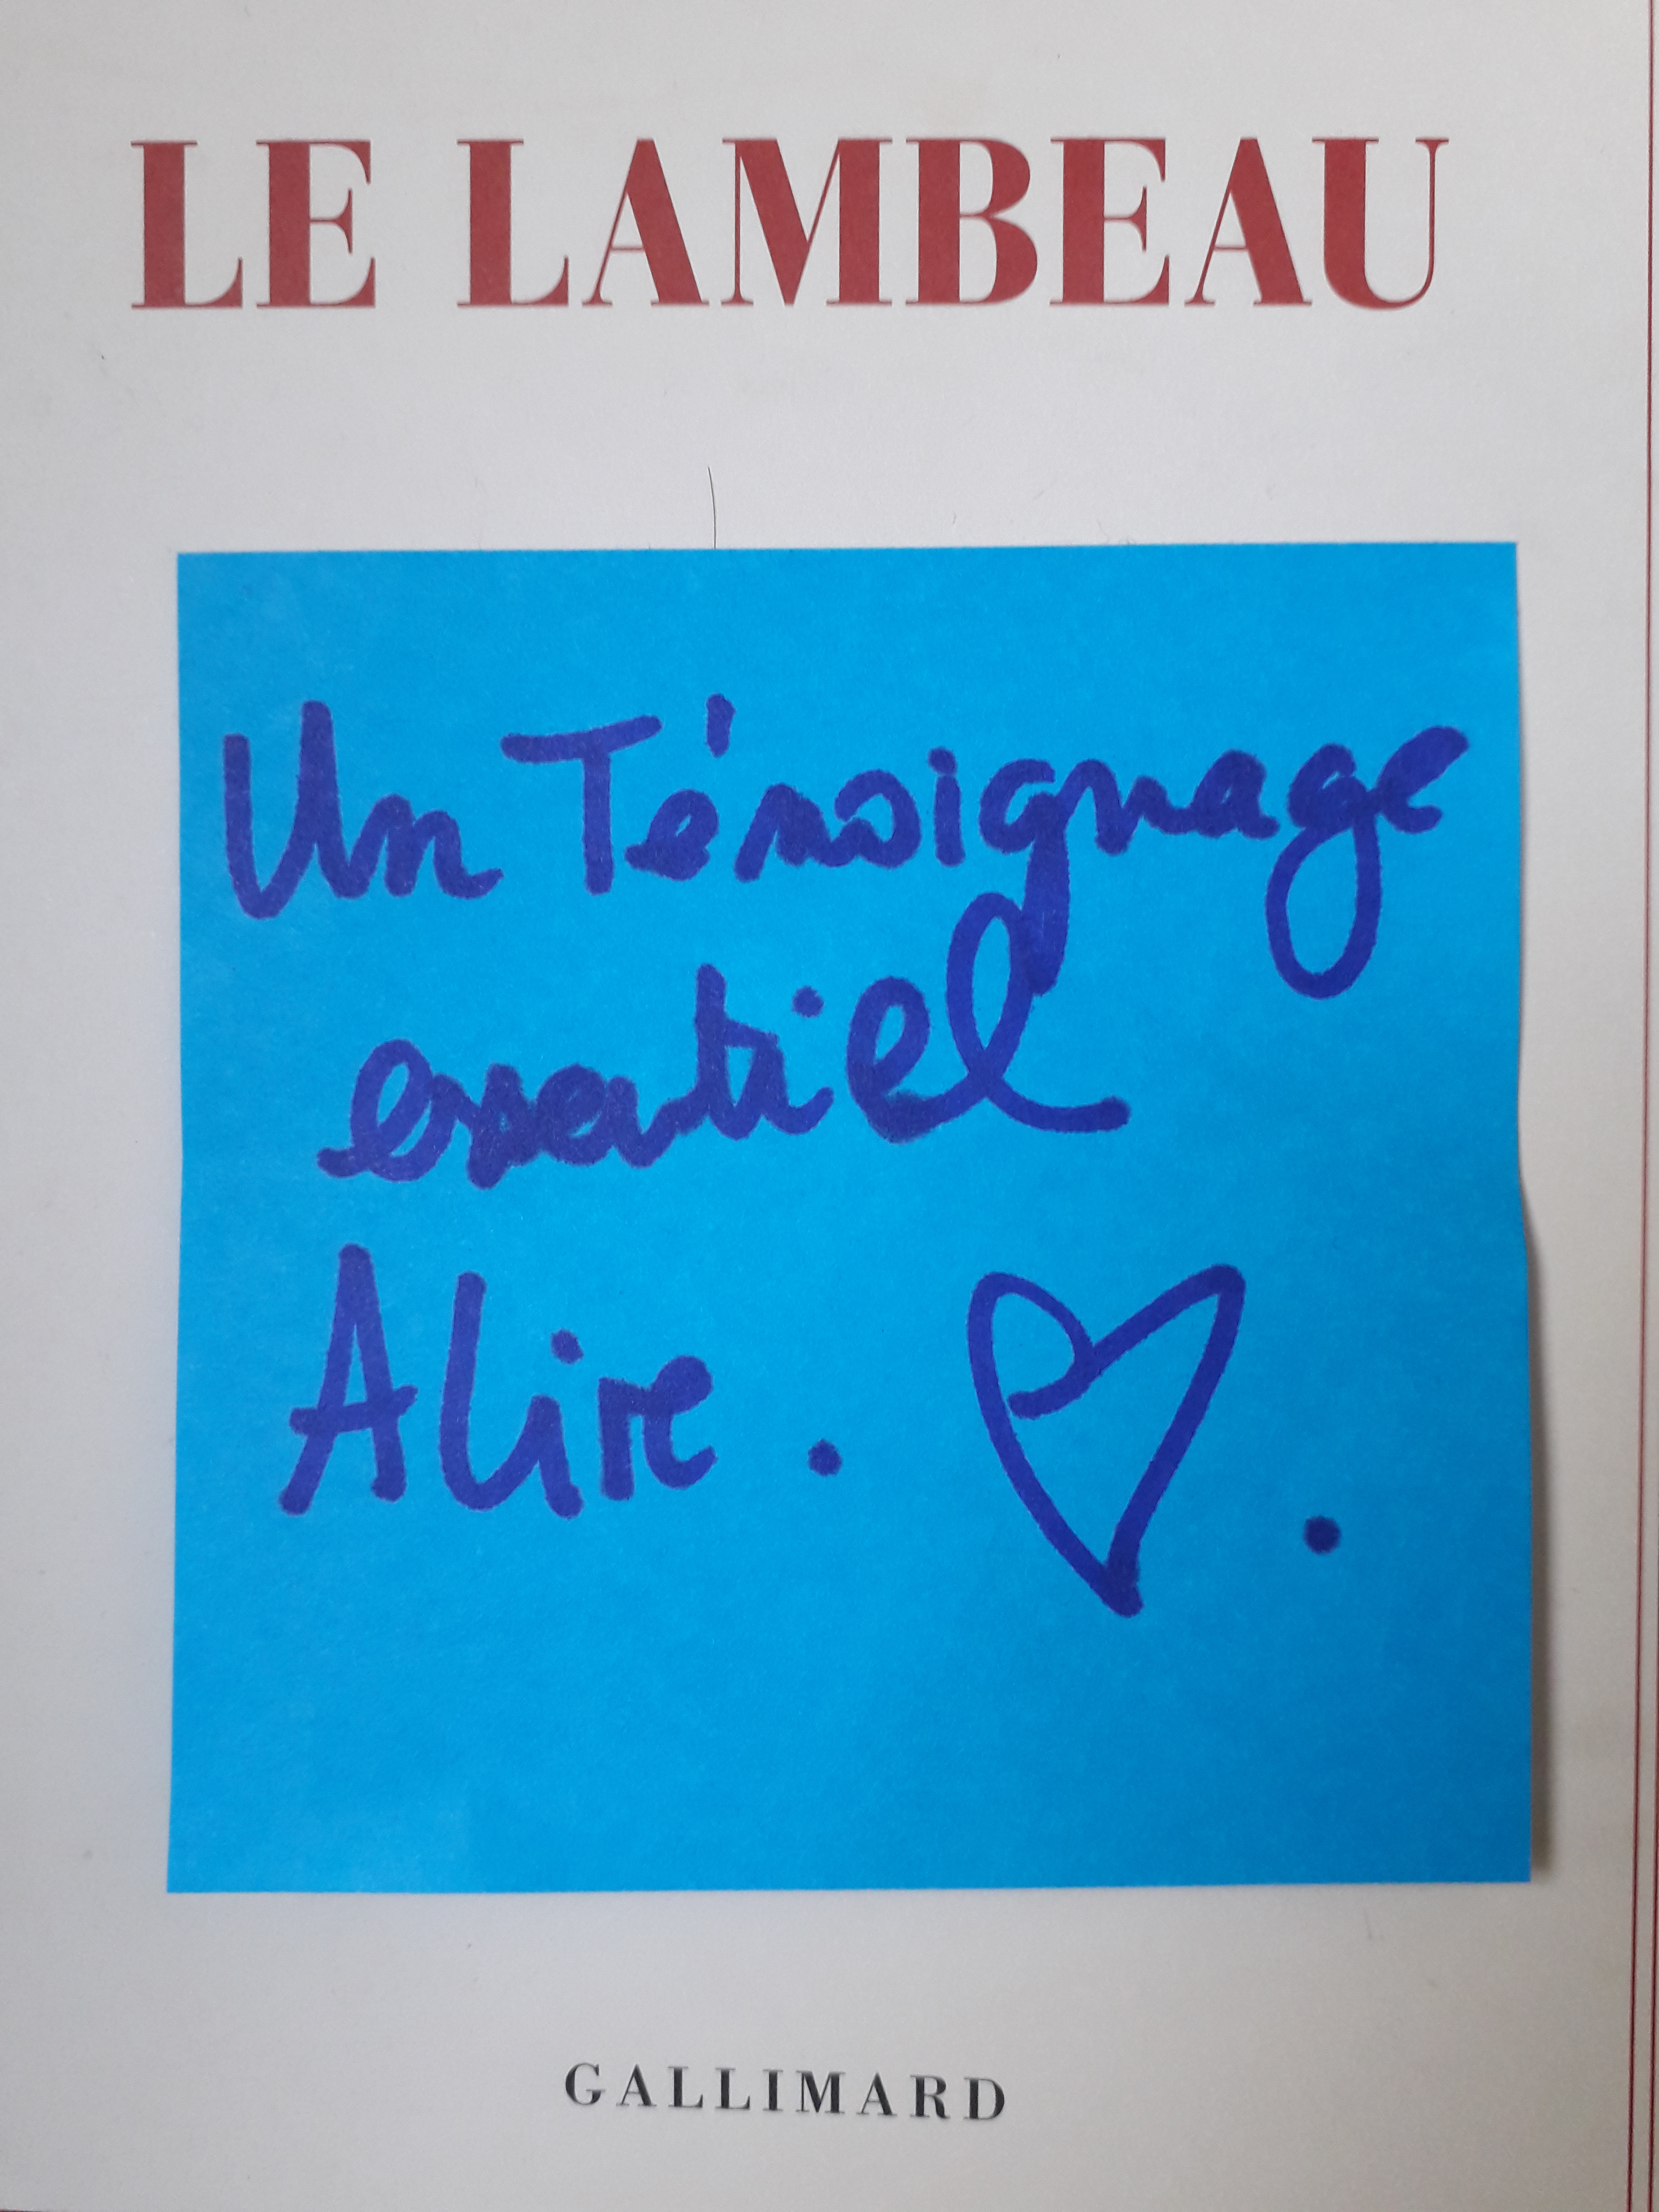 LE LAMBEAU
Un Témoignage
essentiel
A lire . ♡ .
GALLIMARD